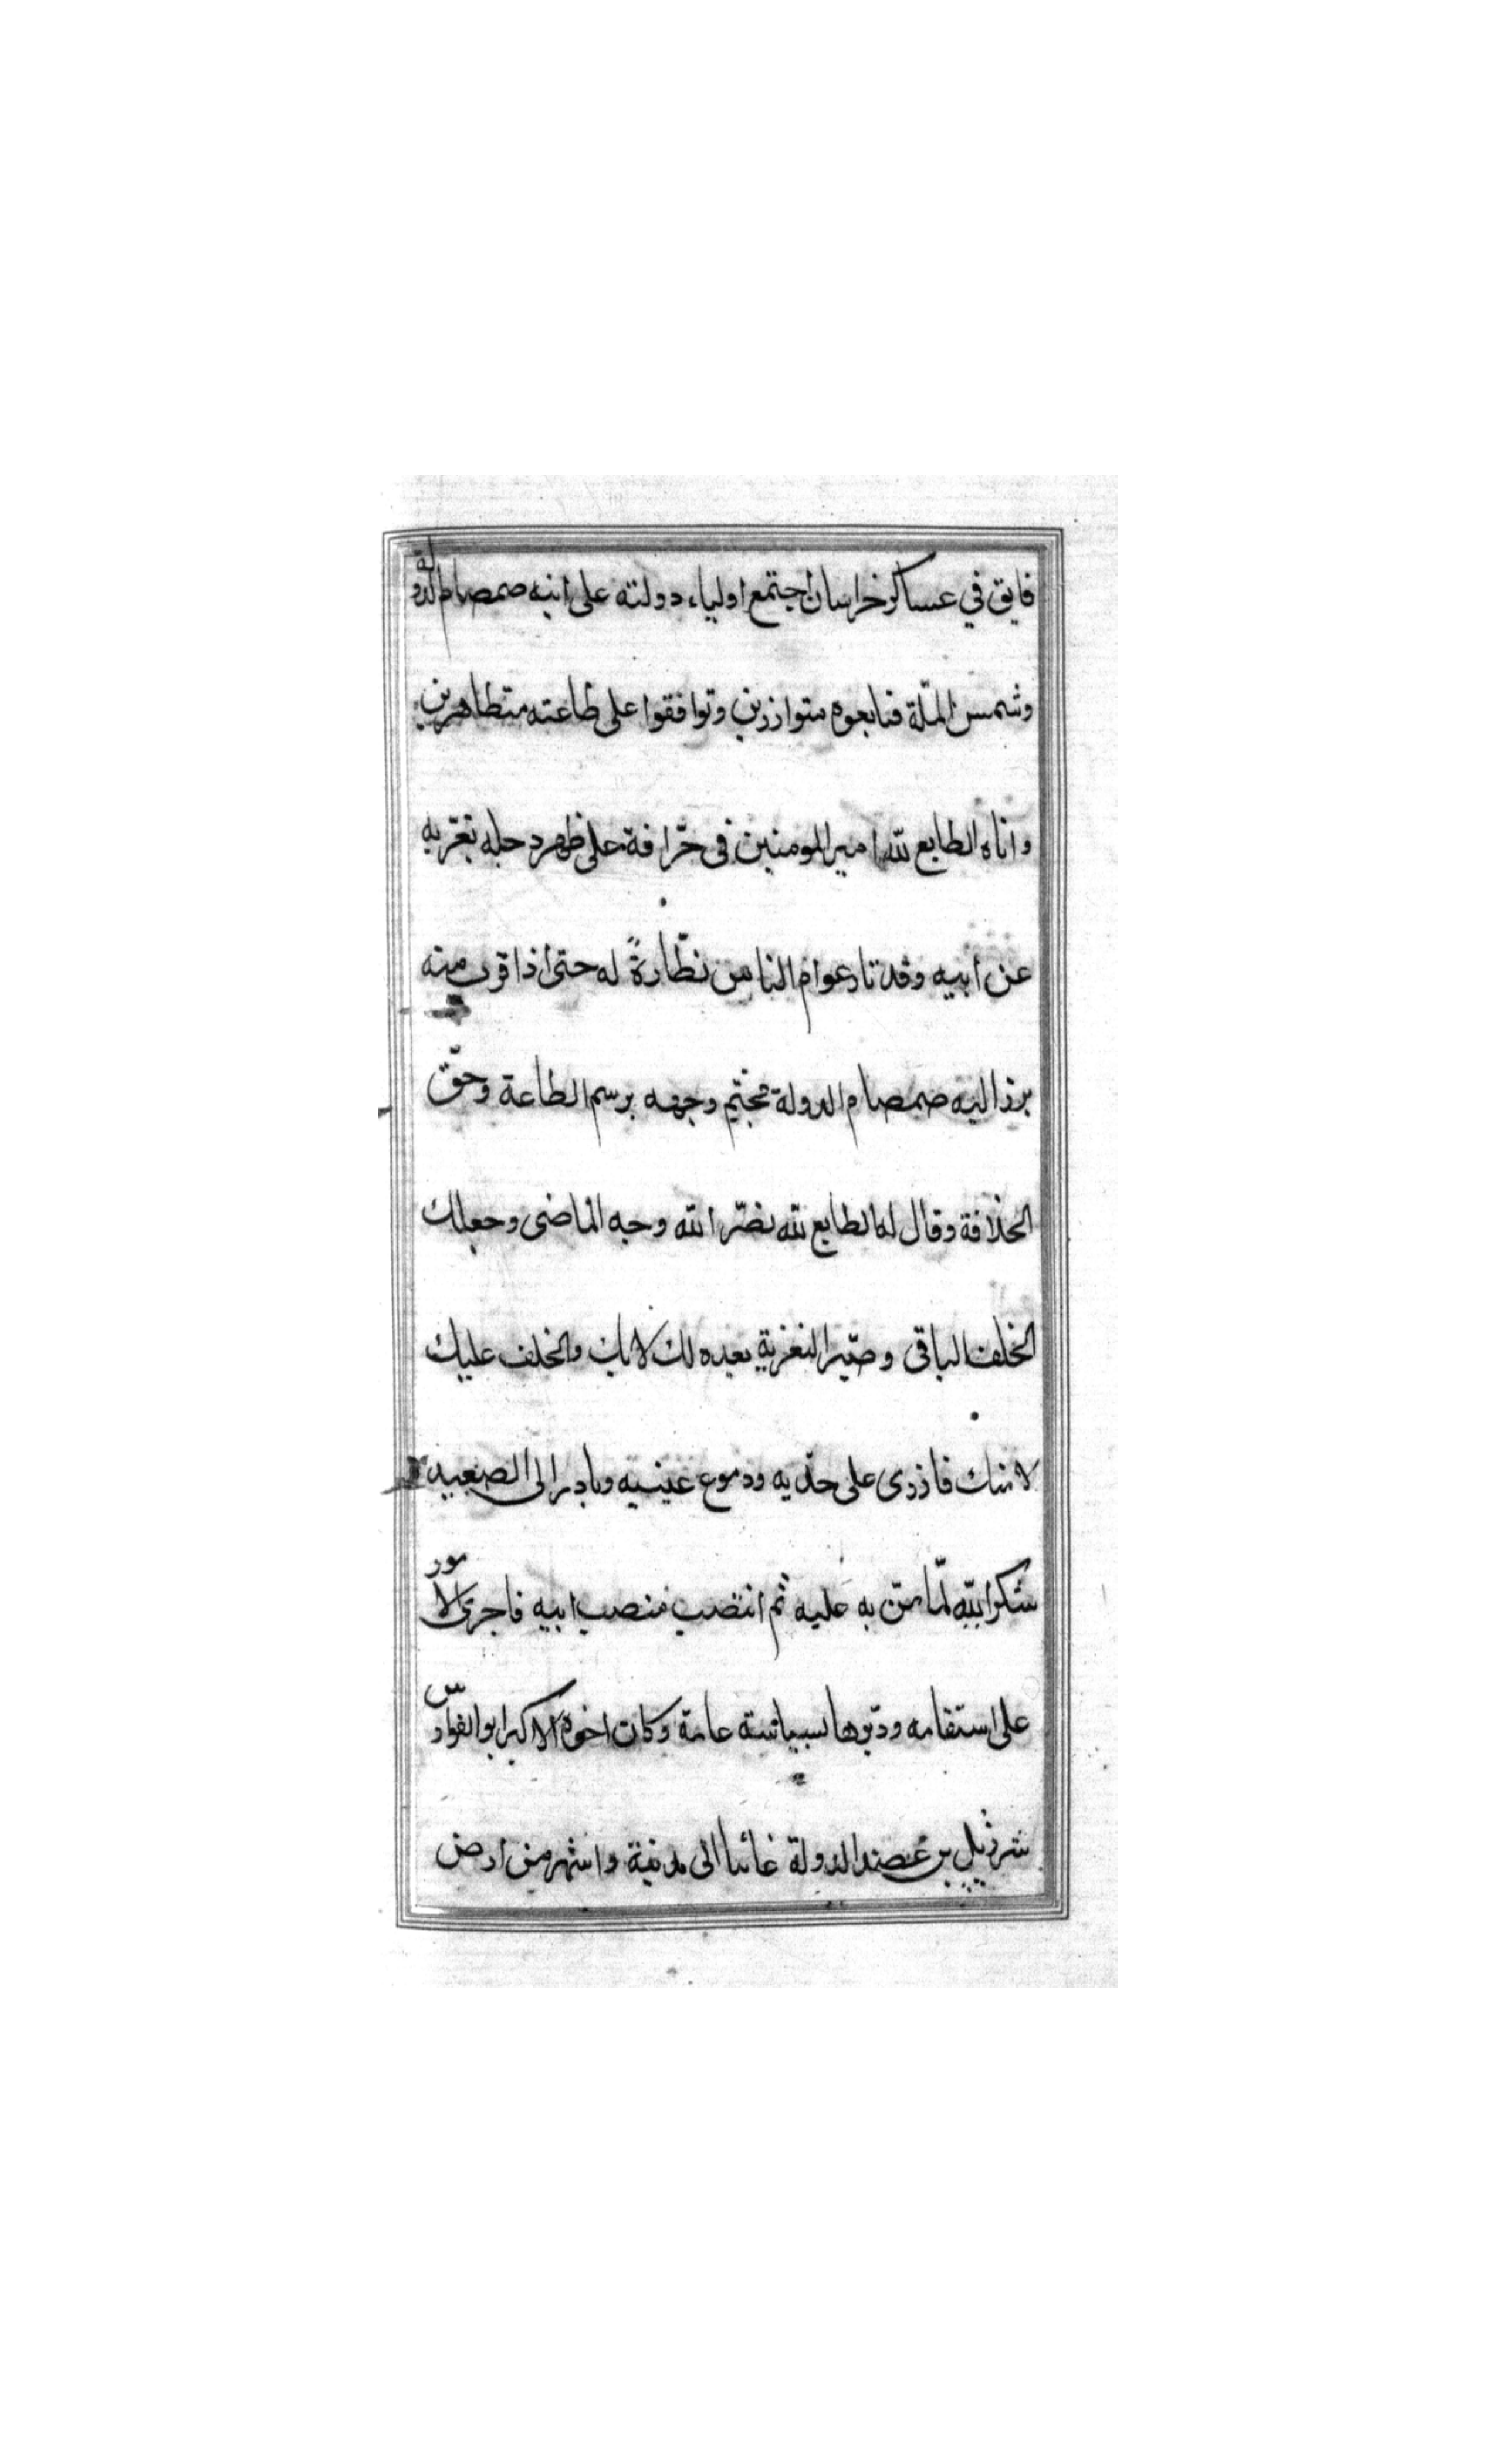 فايق في عساكر خراسان اجتمع اولياء دولته على ابنه صمصام الدولة
وشمس الملّة فتابعوه متوازرين وتوافقوا على طاعته متظاهرين
واتاه الطايع لله امير المومنين فى حرّافة على ظهر دجله يعزّيه
عن ابيه وقد ثار عوام الناس نظّارةً له حتى اذا قرب منه
برز اليه صمصام الدولة وجهه برسم الطاعة وحقّ
الخلافة وقال له الطايع لله نضّر الله وجه الماضى وجعلك
الخلف الباقى وصيّر التعزية بعده لك لا بك والخلف عليك
لا منك فاذرى على خدّيه دموع عينيه وبادر الى الصعيد
شكرا لله لمّا منّ به عليه ثم انتصب منصب ابيه فاجرى الامور
على استقامه ودبّرها بسياسة عامة وكان اخوه الاكبر ابو الفوارس
شرذيل بن عضد الدولة غائبا الى مدينة واشهر من ارض